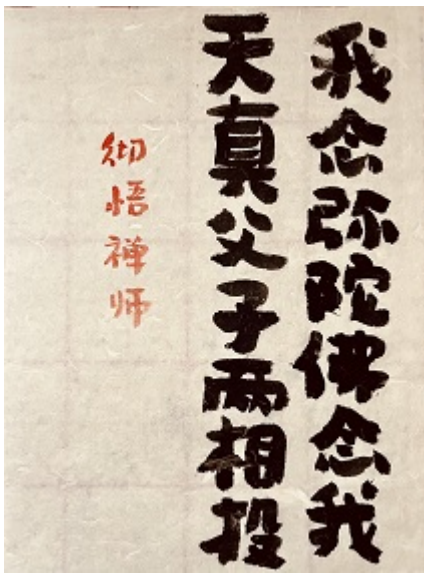 我念弥陀佛念我
天真父子两相投
彻悟禅师